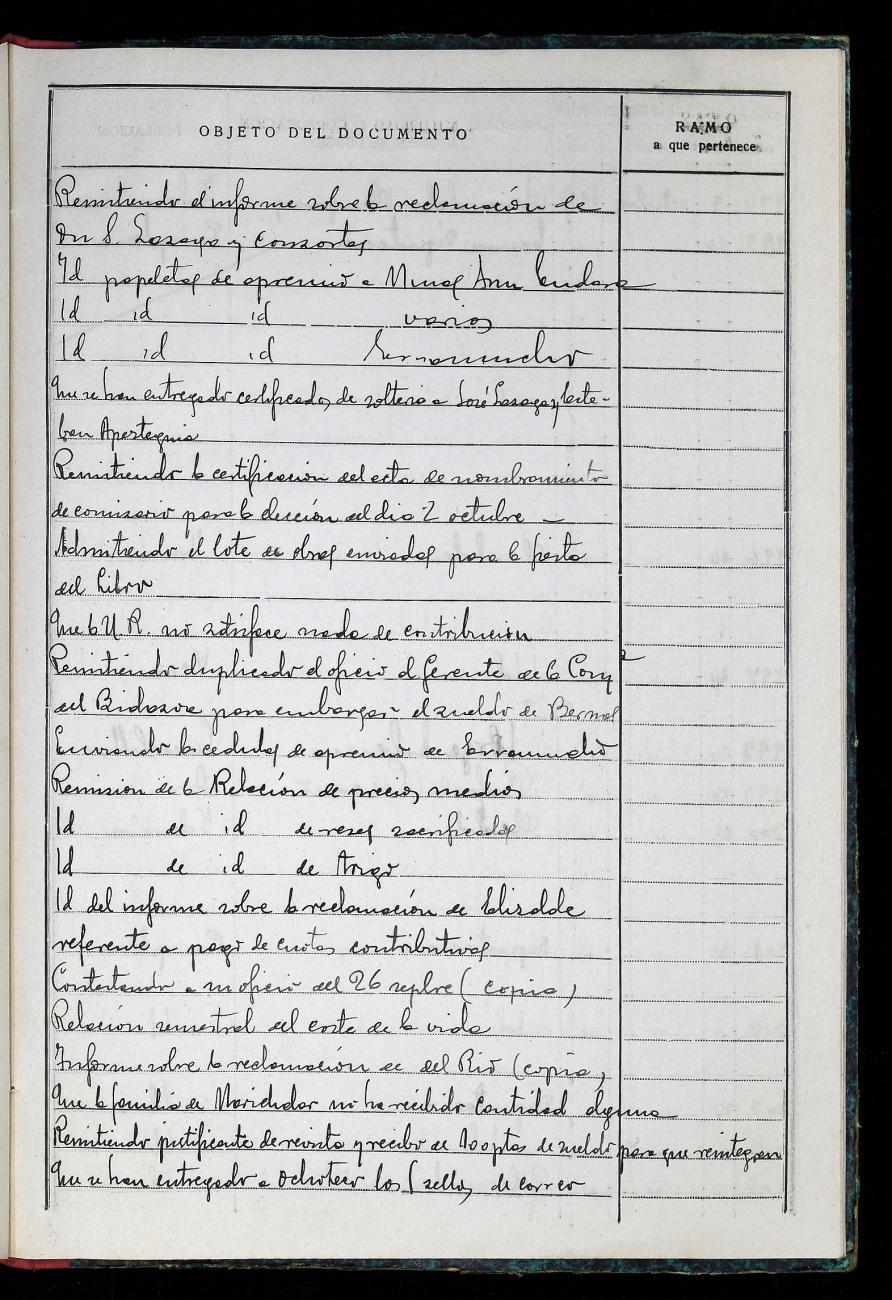 OBJETO DEL DOCUMENTO
RAMO
a que pertenece
Remitiendo el informe sobre la reclamación de
Dn S. Lasaga y consortes
Id papeletas de apremio a
Id id id varios
Id id id Erramuelo
Que se han entregado certificados de solteria a José Lasaga y Este-
ban Apesteguia
Remitiendo la certificación del acta de nombramiento
de comisario para la elección del dia 2 octubre
Admitiendo el lote de obras enviadas para la fiesta
del Libro
Que la U.R. no satisface nada de contribucion
Remitiendo duplicado el oficio al Gerente de la Comp
del Bidasoa para embargar el sueldo de Bernal
Enviando las cedulas de apremio de
Remision de la Relación de precios medios
Id de id de reses sacrificadas
Id de id de trigo
Id del informe sobre la reclamación de Elizalde
referente a pago de cuotas contributivas
Contestando a su oficio del 26 sepbre (copia)
Relación semestral del coste de la vida
Informe sobre la reclamación de del Rio (copia)
Que la familia de Marichalar no ha recibido cantidad alguna
Remitiendo justificante de revista y recibo de 100 ptas de sueldo para que reintegren
Que se han entregado a Ochoteco los sellos de correo